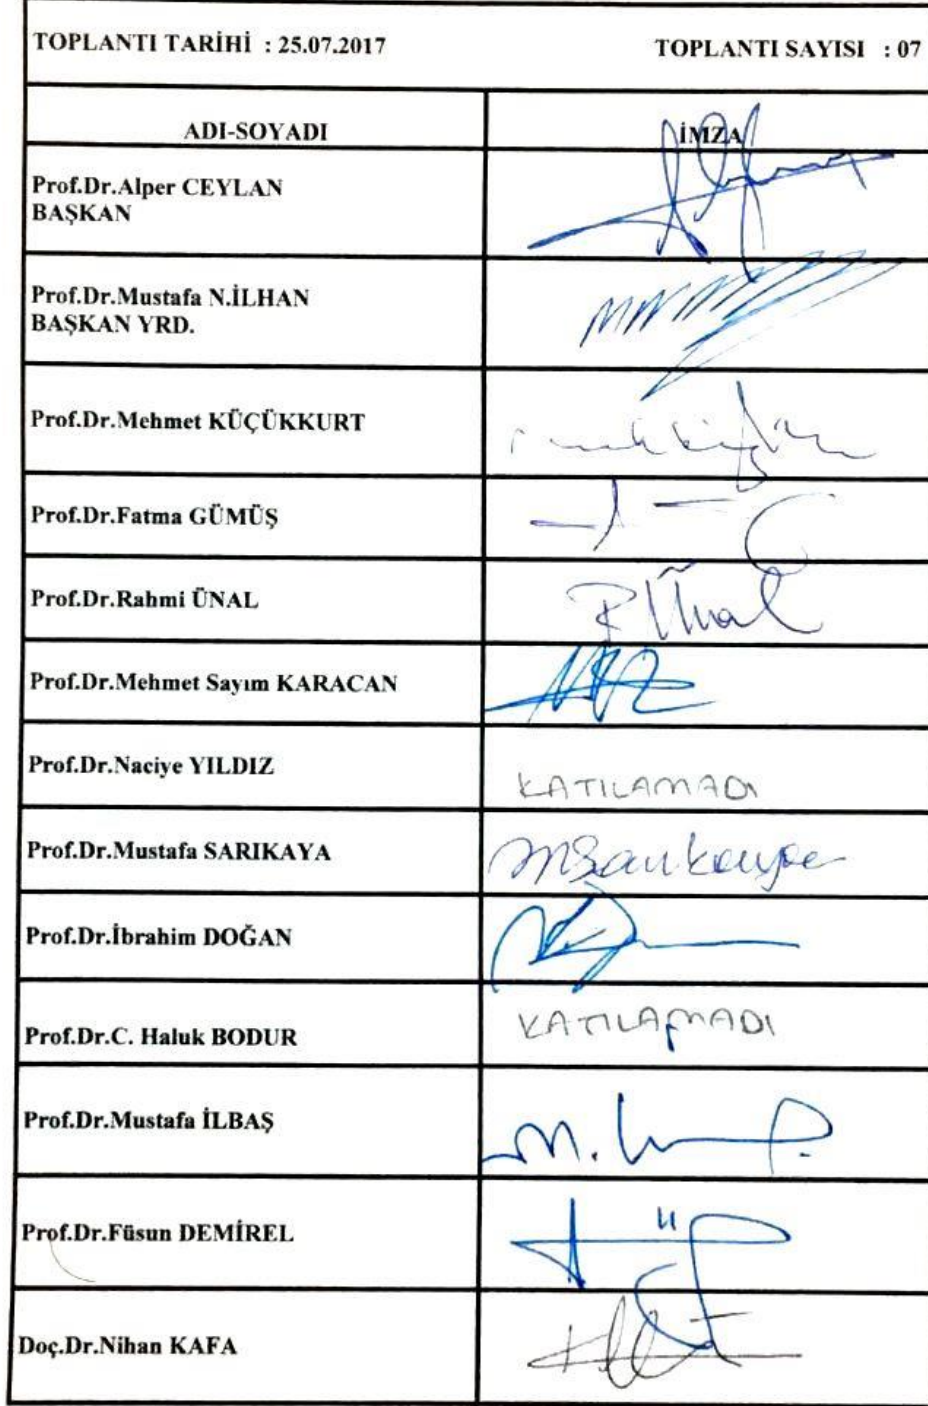 TOPLANTI TARİHİ : 25.07.2017 TOPLANTI SAYISI : 07
ADI-SOYADI İMZA
Prof.Dr.Alper CEYLAN
BAŞKAN
Prof.Dr.Mustafa N.İLHAN
BAŞKAN YRD.
Prof.Dr.Mehmet KÜÇÜKKURT
Prof.Dr.Fatma GÜMÜŞ
Prof.Dr.Rahmi ÜNAL R Ünal
Prof.Dr.Mehmet Sayım KARACAN
Prof.Dr.Naciye YILDIZ KATILAMADI
Prof.Dr.Mustafa SARIKAYA MSarıkaya
Prof.Dr.İbrahim DOĞAN
Prof.Dr.C. Haluk BODUR KATILAMADI
Prof.Dr.Mustafa İLBAŞ
Prof.Dr.Füsun DEMİREL
Doç.Dr.Nihan KAFA